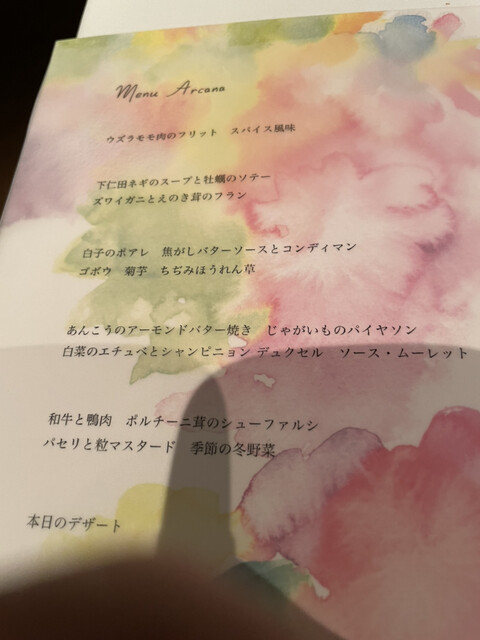 Menu Arcana
ウズラモモ肉のフリット　スパイス風味
下仁田ネギのスープと牡蠣のソテー
ズワイガニとえのき茸のフラン
白子のポアレ　焦がしバターソースとコンディマン
ゴボウ　菊芋　ちぢみほうれん草
あんこうのアーモンドバター焼き　じゃがいものパイヤソン
白菜のエチュベとシャンピニョン デュクセル　ソース・ムーレット
和牛と鴨肉　ポルチーニ茸のシューファルシ
パセリと粒マスタード　季節の冬野菜
本日のデザート